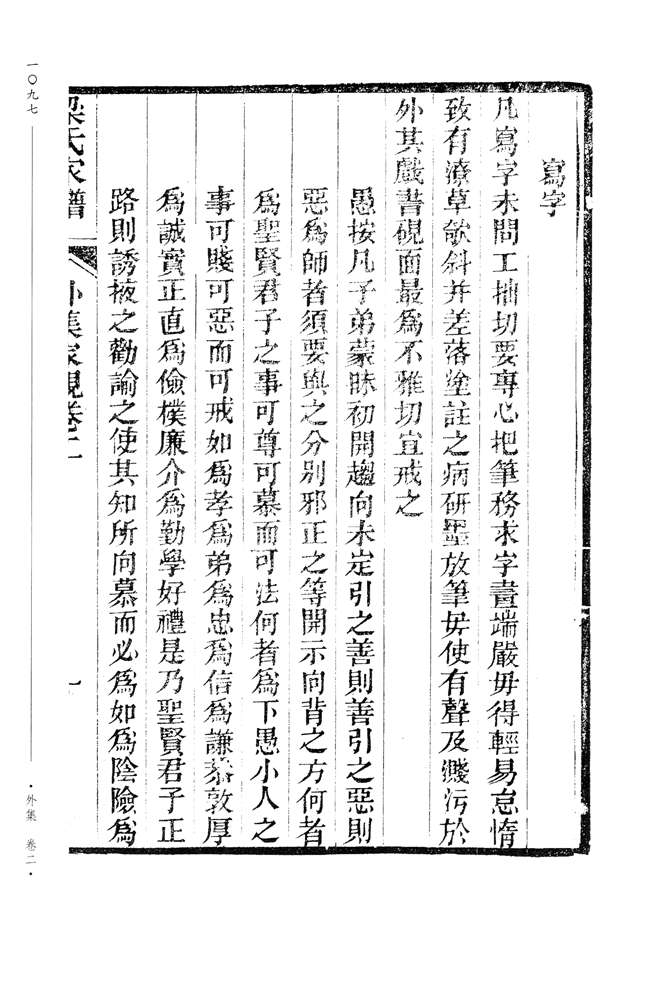 寫字
凡寫字未問工拙切要專心把筆務求字畫端嚴毋得輕易怠惰
致有潦草欹斜并差落塗註之病研墨放筆毋使有聲及濺污於
外其戲書硯面最為不雅切宜戒之
愚按凡子弟蒙昧初開趨向未定引之善則善引之惡則
惡為師者須要與之分別邪正之等開示向背之方何者
為聖賢君子之事可尊可慕而可法何者為下愚小人之
事可賤可惡而可戒如為孝為弟為忠為信為謙恭敦厚
為誠實正直為儉樸廉介為勤學好禮是乃聖賢君子正
路則誘掖之勸諭之使其知所向慕而必為如為陰險為
梁氏家譜
外集家規卷二
一〇九七
·外集 卷二·